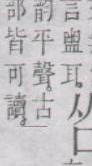 言盥耳。
韵平聲。古
部皆可讀。